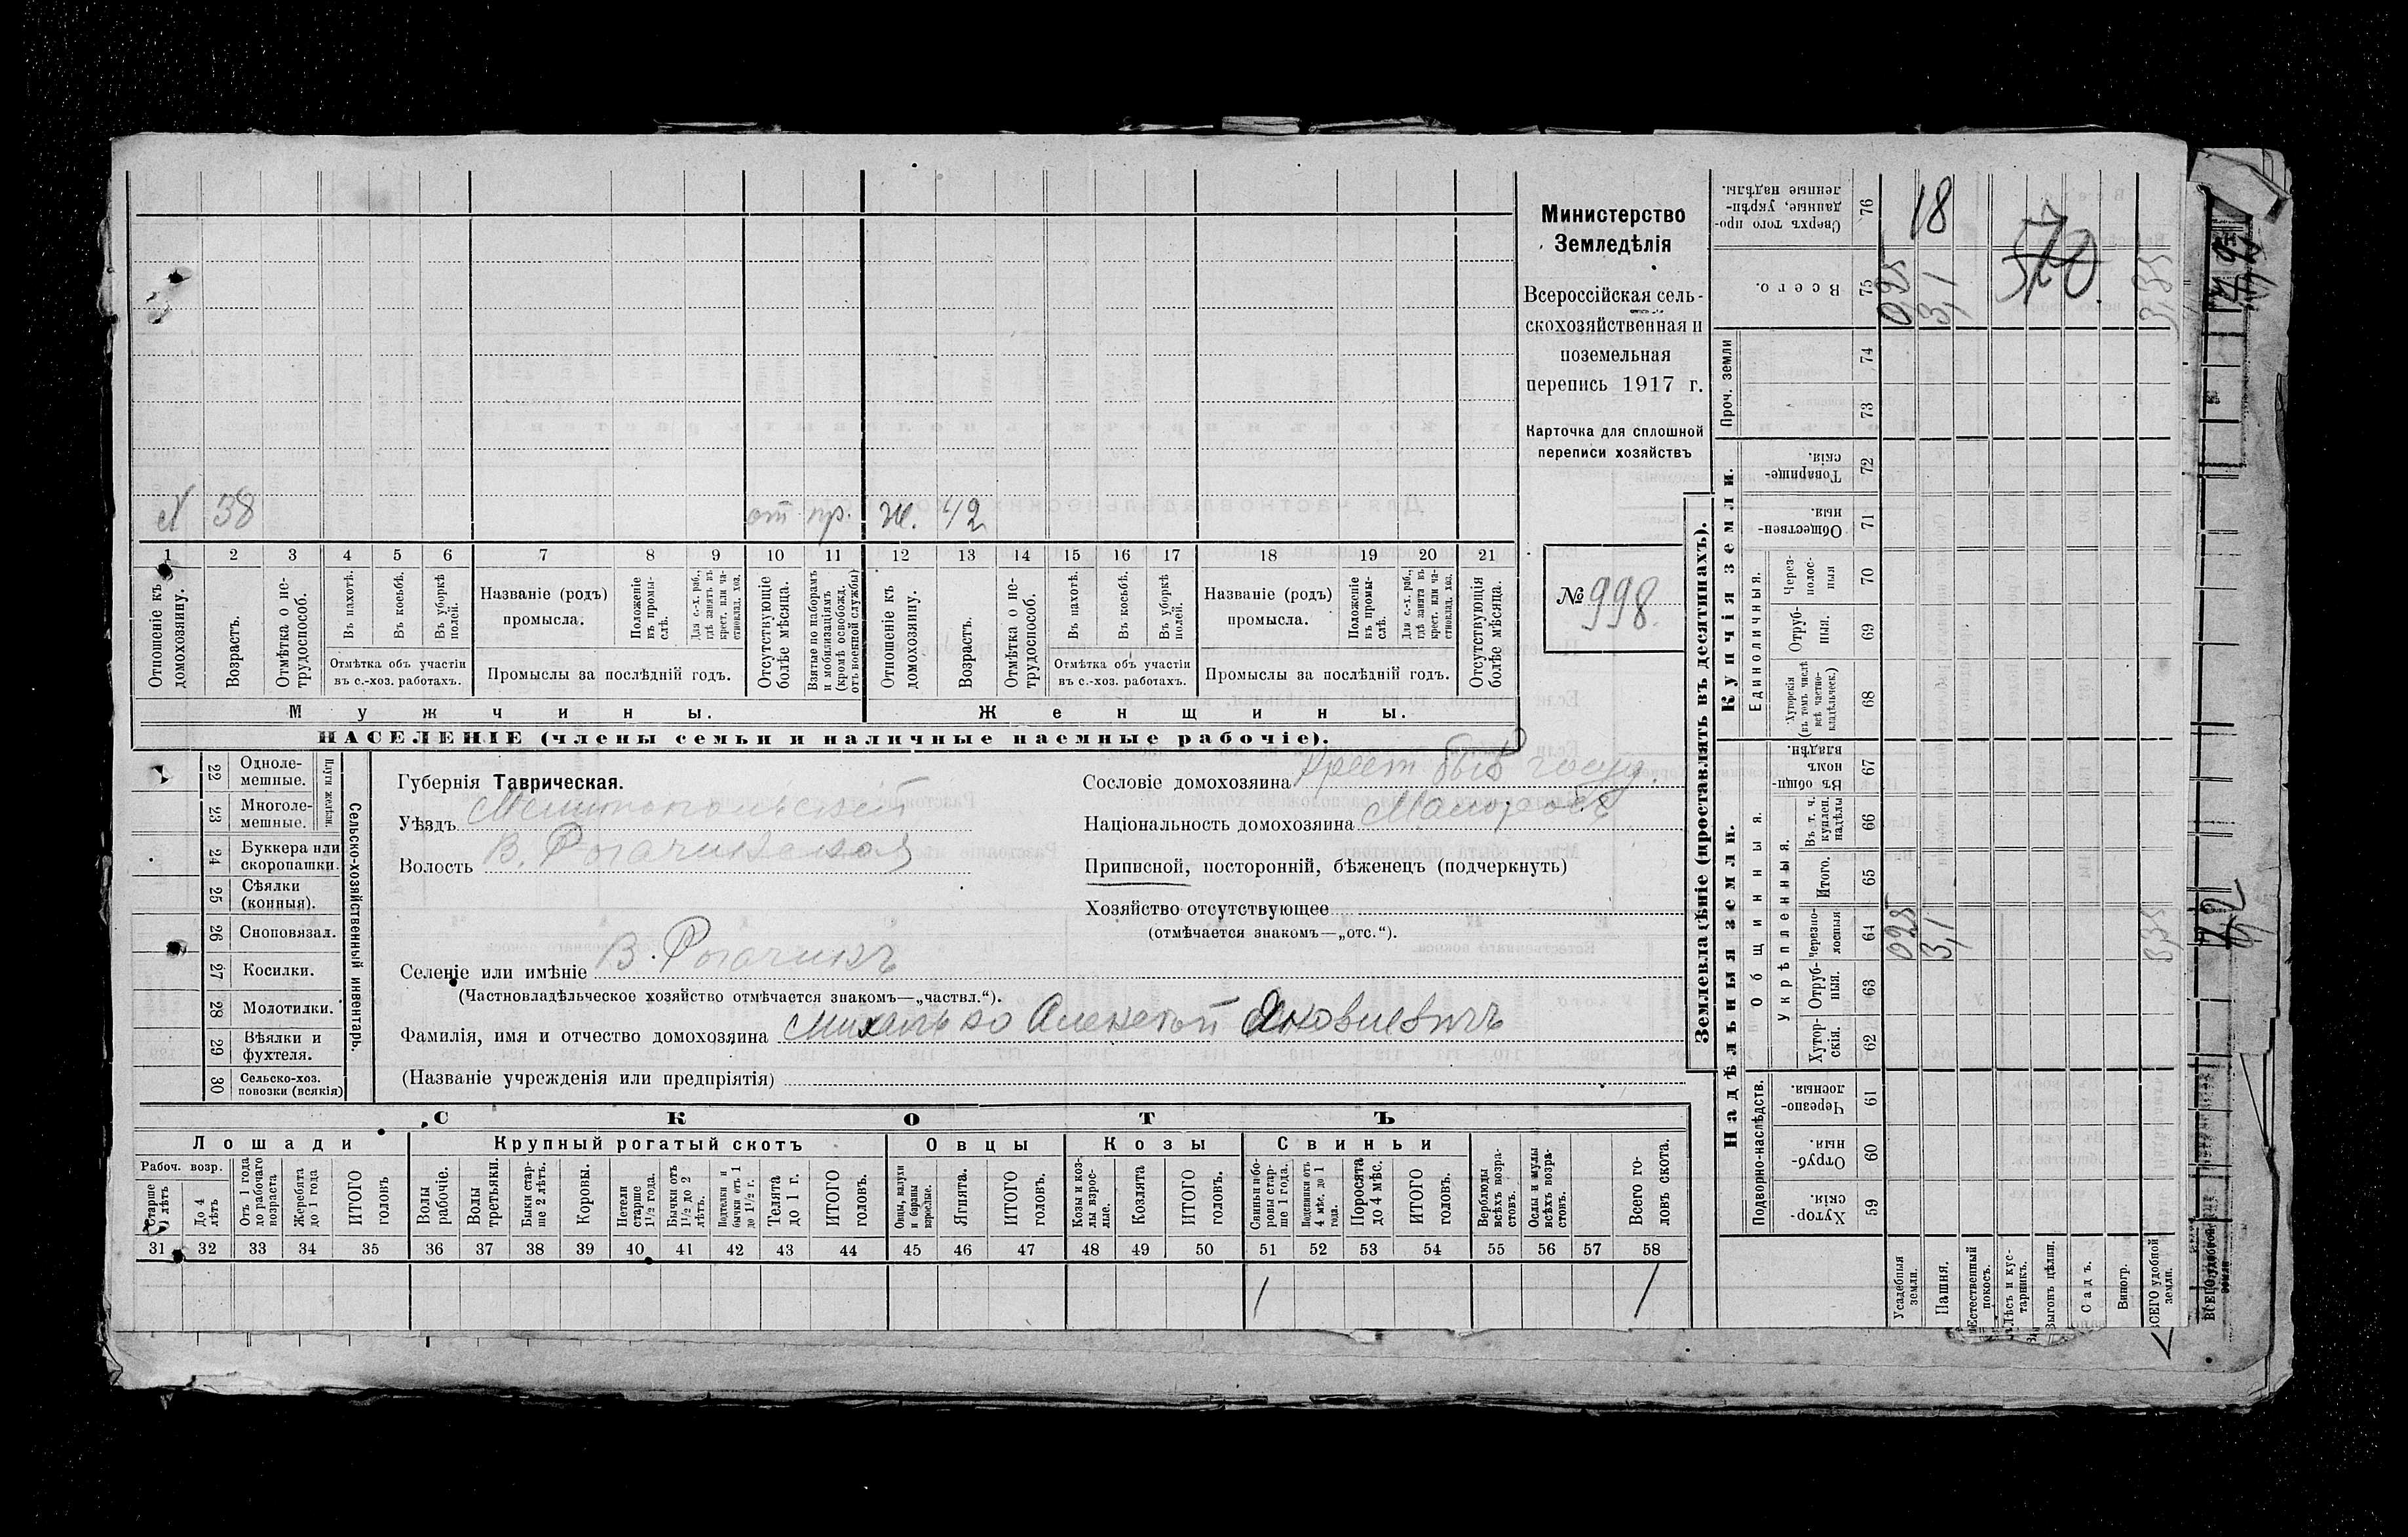 Министерство
Земледѣлія
Всероссійская сель-
скохозяйственная и
поземельная
перепись 1917 г.
Карточка для сплошной
переписи хозяйствъ
№ 998.
38
от пр. ж. 42
1 2 3 4 5 6 7 8 9 10 11 12 13 14 15 16 17 18 19 20 21
Отношеніе къ домохозяину.
Возрастъ.
Отмѣтка о не-трудоспособ.
Въ пахотѣ.
Въ косьбѣ.
Въ уборкѣ полей.
Отмѣтка объ участіи
въ с.-хоз. работахъ.
Названіе (родъ)
промысла.
Положеніе въ промы-слѣ.
Для с.-х. раб., гдѣ занятъ въ крест. или ча-стновлад. хоз.
Промыслы за послѣдній годъ.
Отсутствующіе болѣе мѣсяца.
Взятые по наборамъ и мобилизаціямъ (кромѣ освобожд. отъ военной службы)
Отношеніе къ домохозяину.
Возрастъ.
Отмѣтка о не-трудоспособ.
Въ пахотѣ.
Въ косьбѣ.
Въ уборкѣ полей.
Отмѣтка объ участіи
въ с.-хоз. работахъ.
Названіе (родъ)
промысла.
Положеніе въ промы-слѣ.
Для с.-х. раб., гдѣ занята въ крест. или ча-стновлад. хоз.
Промыслы за послѣдній годъ.
Отсутствующія болѣе мѣсяца.
Мужчины.
Женщины.
НАСЕЛЕНІЕ (члены семьи и наличные наемные рабочіе).
22 Одноле-мешные.
23 Многоле-мешные.
Плуги желѣзн.
24 Буккера или скоропашки.
25 Сѣялки (конныя).
26 Сноповязал.
27 Косилки.
28 Молотилки.
29 Вѣялки и фухтеля.
30 Сельско-хоз. повозки (всякія)
Сельско-хозяйственный инвентарь.
Губернія Таврическая.
Уѣздъ Мелитопольский
Волость В. Рогачикская
Селеніе или имѣніе В. Рогачикъ
(Частновладѣльческое хозяйство отмѣчается знакомъ—„частвл.“).
Фамилія, имя и отчество домохозяина Михалько Алексѣй Яковлевичъ
(Названіе учрежденія или предпріятія)
Сословіе домохозяина Крест. быв. госуд.
Національность домохозяина Малоросъ
Приписной, посторонній, бѣженецъ (подчеркнуть)
Хозяйство отсутствующее
(отмѣчается знакомъ—„отс.“).
СКОТЪ
Лошади
Крупный рогатый скотъ
Овцы
Козы
Свиньи
Рабоч. возр.
Старше 4 лѣтъ
До 4 лѣтъ
Отъ 1 года до рабочаго возраста
Жеребята до 1 года
ИТОГО головъ
Волы рабочіе.
Волы третьяки.
Быки стар-ше 2 лѣтъ.
Коровы.
Нетели старше 1½ года.
Бычки отъ 1½ до 2 лѣтъ.
Подтелки и бычки отъ 1 до 1½ г.
Телята до 1 г.
ИТОГО головъ.
Овцы, валухи и бараны взрослые.
Ягнята.
ИТОГО головъ.
Козы и коз-лы взрос-лые.
Козлята
ИТОГО головъ.
Свиньи и бо-ровы стар-ше 1 года.
Подсвинки отъ 4 мѣс. до 1 года.
Поросята до 4 мѣс.
ИТОГО головъ.
Верблюды всѣхъ возра-стовъ.
Ослы и мулы всѣхъ возра-стовъ.
Всего го-ловъ скота.
31 32 33 34 35 36 37 38 39 40 41 42 43 44 45 46 47 48 49 50 51 52 53 54 55 56 57 58
1 1
Землевладѣніе (проставлять въ десятинахъ).
Надѣльныя земли.
Купчія земли.
Проч. земли
Подворно-наслѣдств.
Общинныя.
Укрѣпленныя.
Единоличныя.
Хутор-скія. 59
Отруб-ныя. 60
Черезпо-лосныя. 61
Хутор-скія. 62
Отруб-ныя. 63
Черезпо-лосныя 64
Итого. 65
Въ т. ч. куплен. надѣлы 66
Въ общин-номъ владѣн. 67
Хуторскія (въ томъ числѣ всѣ частно-владѣльческ.) 68
Отруб-ныя. 69
Через-полос-ныя 70
Обществен-ныя. 71
Товарище-скія. 72
73
74
Всего. 75
Сверхъ того про-данные, укрѣп-ленные надѣлы. 76
Усадебныя земли.
Пашня.
Естественный покосъ.
Лѣсъ и кус-тарникъ.
Выгонъ цѣлин.
Садъ.
Виногр.
ВСЕГО удобной земли.
025 3,1 3,35
025 3,1 3,35
18
ВСЕГО удобной земли